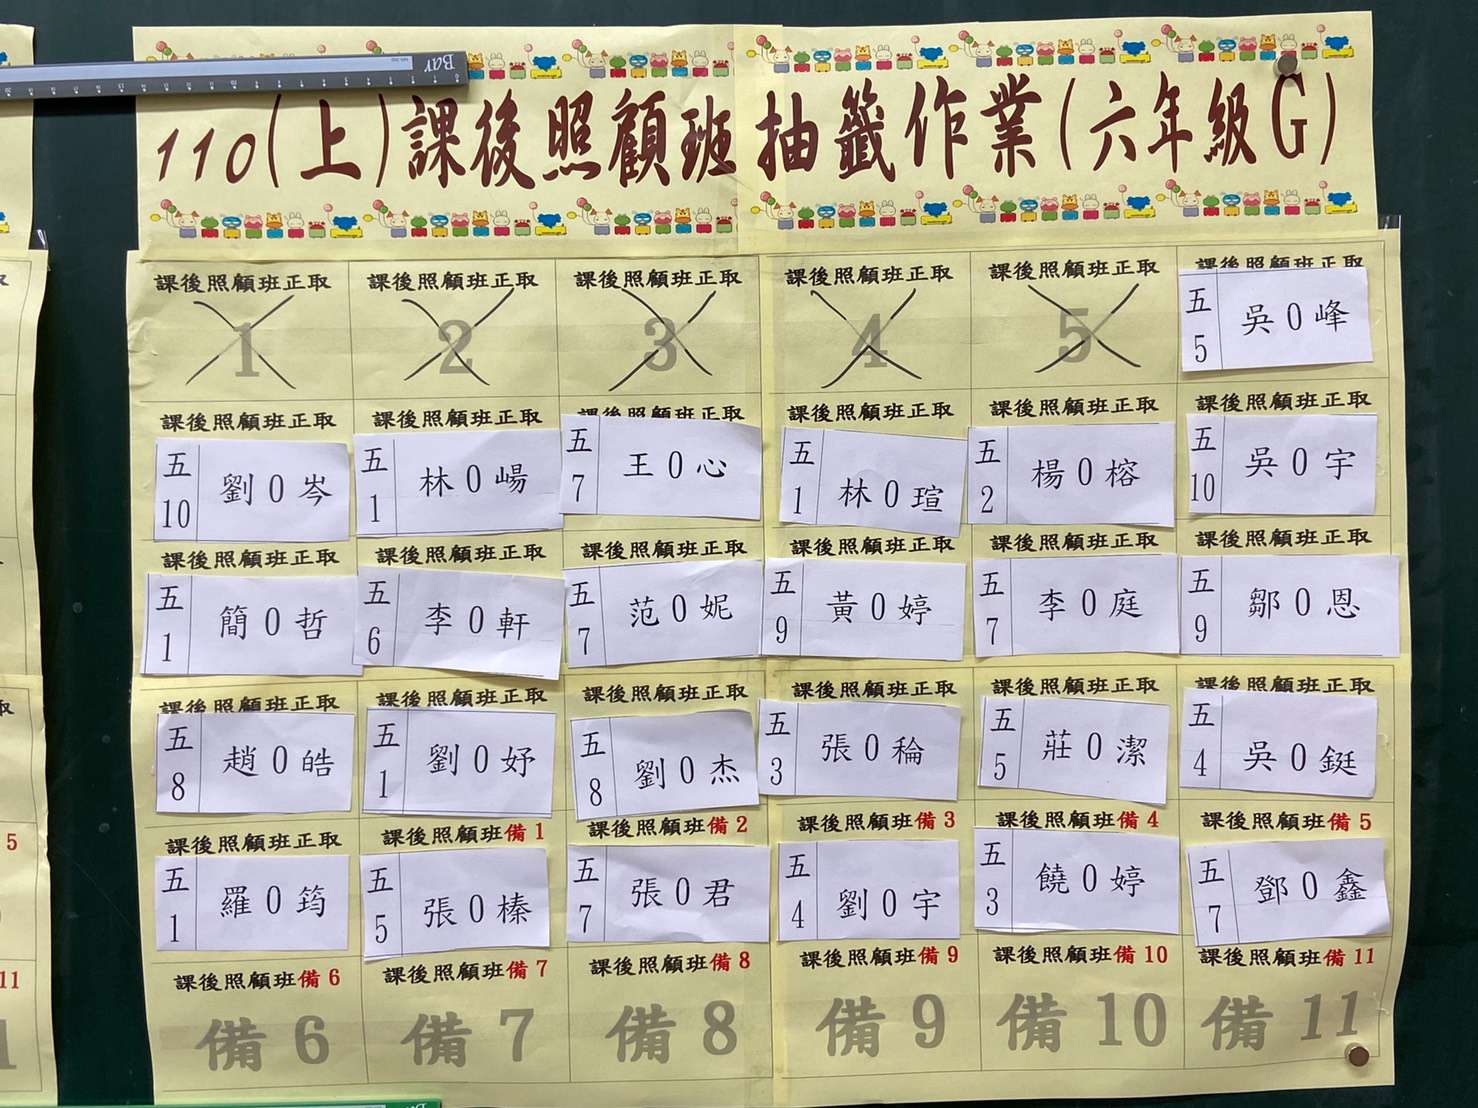 Bar
110(上)課後照顧班抽籤作業(六年級G)
課後照顧班正取 課後照顧班正取 課後照顧班正取 課後照顧班正取 課後照顧班正取 課後照顧班正取
1 2 3 4 5 五5 吳0峰
課後照顧班正取 課後照顧班正取 課後照顧班正取 課後照顧班正取 課後照顧班正取 課後照顧班正取
五10 劉0岑 五1 林0崵 五7 王0心 五1 林0瑄 五2 楊0榕 五10 吳0宇
課後照顧班正取 課後照顧班正取 課後照顧班正取 課後照顧班正取 課後照顧班正取 課後照顧班正取
五1 簡0哲 五6 李0軒 五7 范0妮 五9 黃0婷 五7 李0庭 五9 鄒0恩
課後照顧班正取 課後照顧班正取 課後照顧班正取 課後照顧班正取 課後照顧班正取 課後照顧班正取
五8 趙0皓 五1 劉0妤 五8 劉0杰 五3 張0稐 五5 莊0潔 五4 吳0鋌
課後照顧班正取 課後照顧班備1 課後照顧班備2 課後照顧班備3 課後照顧班備4 課後照顧班備5
五1 羅0筠 五5 張0榛 五7 張0君 五4 劉0宇 五3 饒0婷 五7 鄧0鑫
課後照顧班備6 課後照顧班備7 課後照顧班備8 課後照顧班備9 課後照顧班備10 課後照顧班備11
備6 備7 備8 備9 備10 備11
取
取
5
11